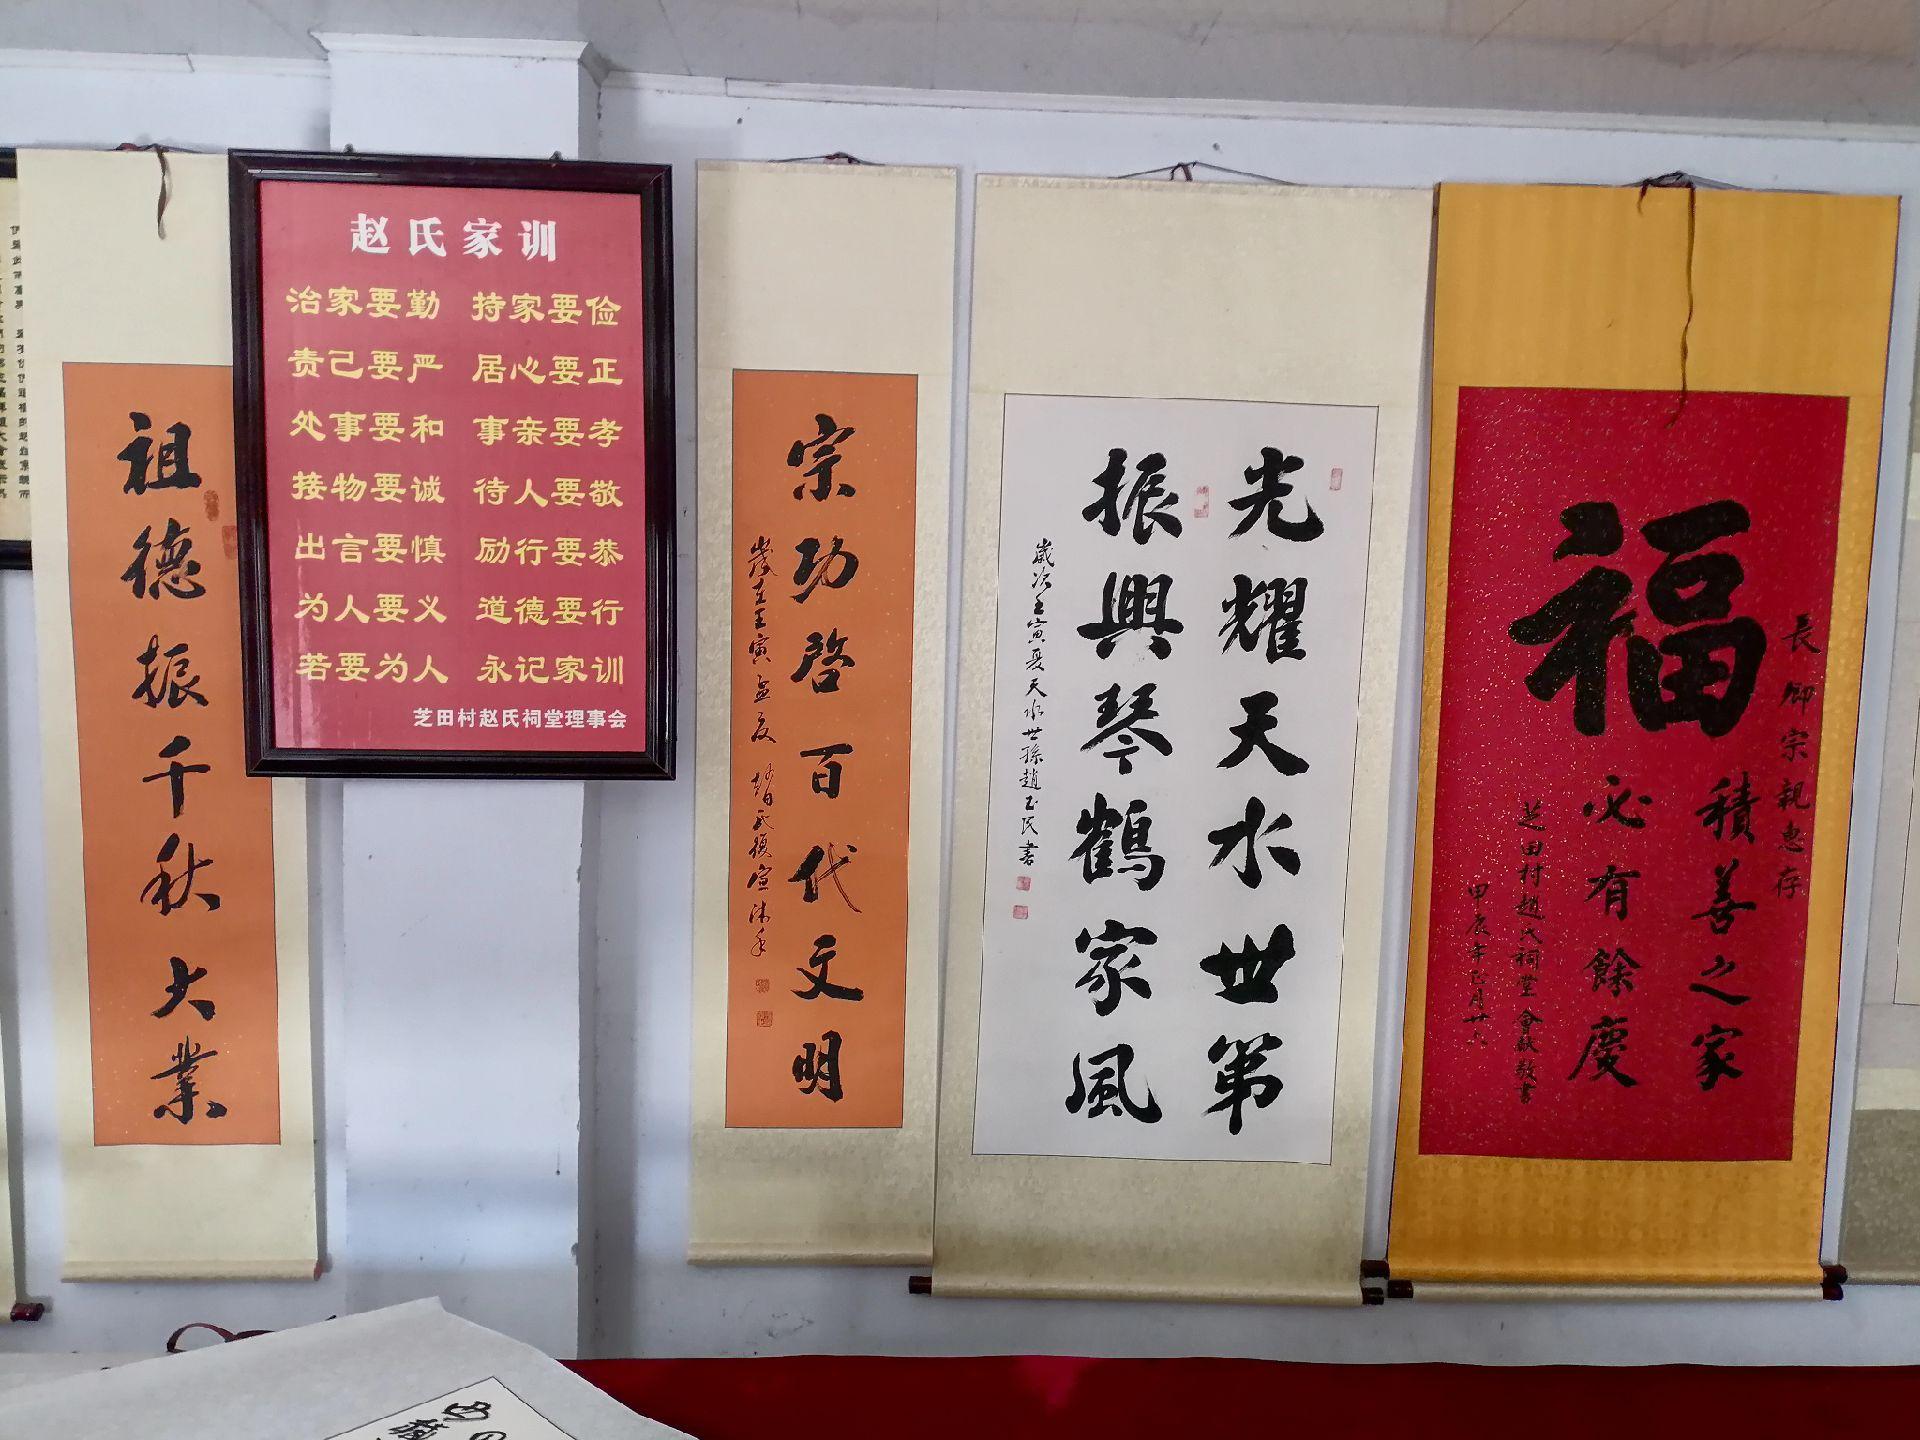 祖德振千秋大業
赵氏家训
治家要勤 持家要俭
责己要严 居心要正
处事要和 事亲要孝
接物要诚 待人要敬
出言要慎 励行要恭
为人要义 道德要行
若要为人 永记家训
芝田村赵氏祠堂理事会
宗功啓百代文明
光耀天水世第
振興琴鶴家風
歲次壬寅夏天水世孫趙玉民書
長卿宗親惠存
福
積善之家
必有餘慶
芝田村趙氏祠堂
甲辰年正月廿六